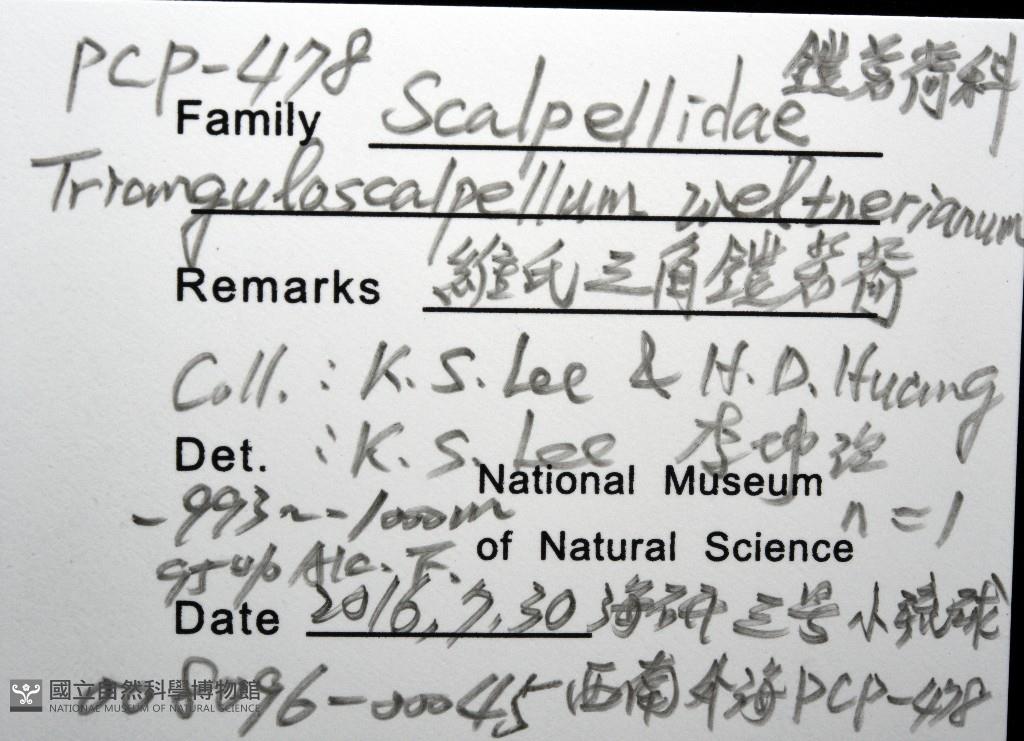 PCP-478 鎧茗荷科
Family Scalpellidae
Trianguloscalpellum weltnerianum
Remarks 維氏三角鎧茗荷
Coll. : K. S. Lee & H. D. Huang
Det. : K. S. Lee 李坤瑄
National Museum
-993~-1000m n=1
of Natural Science
95% Alc. F.
Date 2016,7,30 海研三号 小琉球
96-00045 西南外海 PCP-478
國立自然科學博物館
NATIONAL MUSEUM OF NATURAL SCIENCE